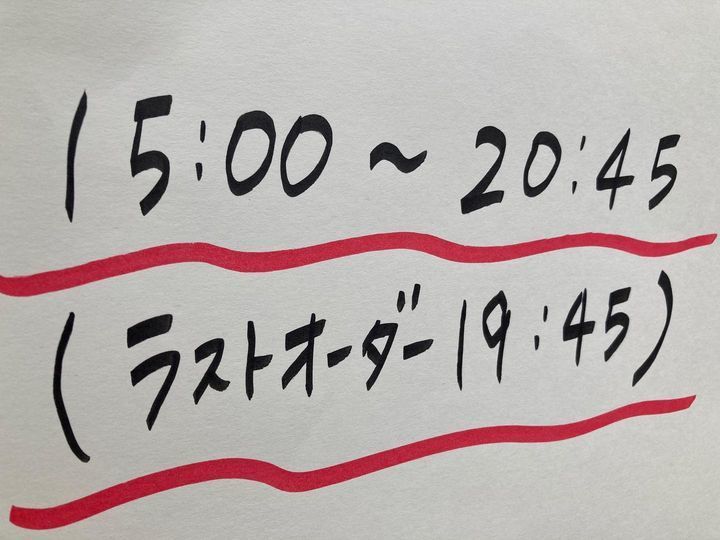 15:00〜20:45
(ラストオーダー19:45)